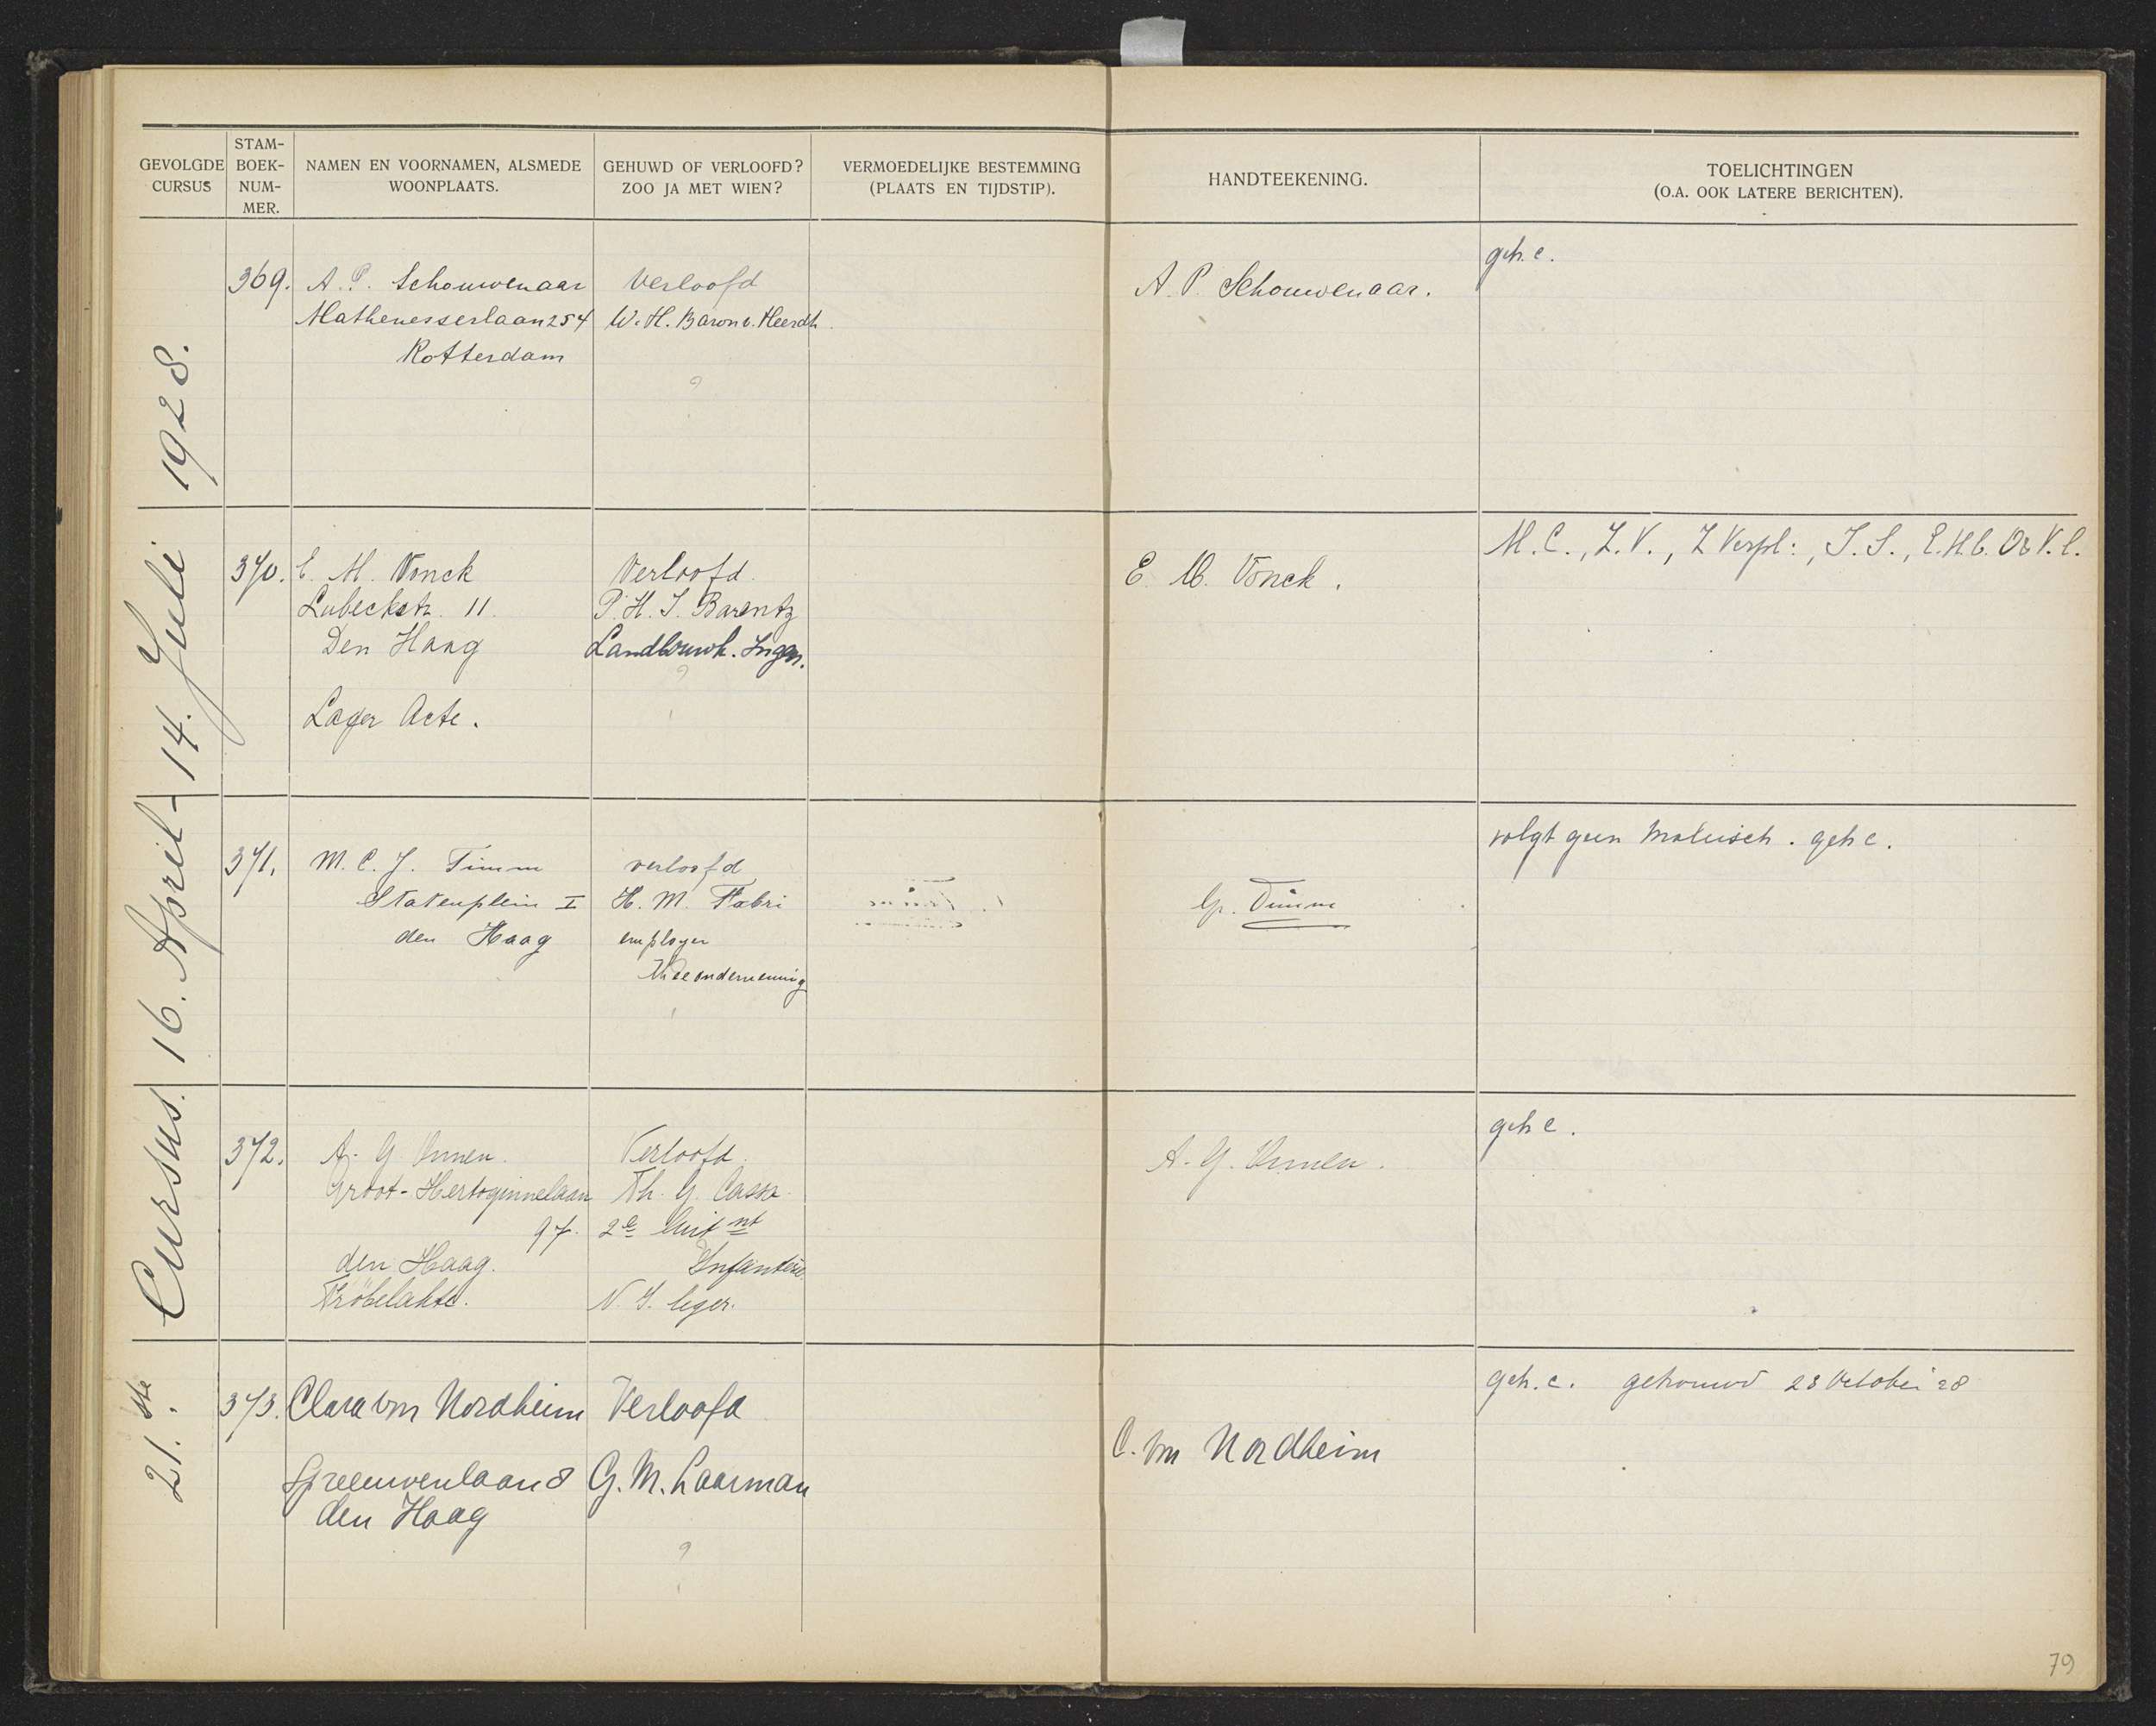 GEVOLGDE
CURSUS
STAM-
BOEK-
NUM-
MER.
NAMEN EN VOORNAMEN, ALSMEDE
WOONPLAATS.
GEHUWD OF VERLOOFD?
ZOO JA MET WIEN?
VERMOEDELIJKE BESTEMMING
(PLAATS EN TIJDSTIP).
HANDTEEKENING.
TOELICHTINGEN
(O.A. OOK LATERE BERICHTEN).
21.ste Cursus. 16. April - 14. Juli 1928.
369.
A. P. Schouwenaar
Mathenesserlaan 254
Rotterdam
Verloofd
W. H. Baron v. Heerdt
?
A. P. Schouwenaar.
geh. c.
370.
E. M. Vonck
Lubeckstr. 11.
Den Haag
Lager Acte.
Verloofd.
P. H. J. Barentz
Landbouwk. Ingen.
?
E. M. Vonck.
M. C., Z. V., Z Verpl:, J. S., E.H.b. Ob V. C.
371.
M. C. J. Timm
Statenplein I
den Haag
verloofd
H. M. Fabri
employer
Thee onderneming
Timm
volgt geen Maleisch. geh c.
372.
A. G. Ummen.
Groot-Hertoginnelaan
97.
den Haag.
Fröbelakte.
Verloofd.
Th. G.
2e Luit nt
Infanterie
N. I. leger.
A. G. Ummen.
geh c.
373.
Clara von Nordheim
Spreeuwenlaan 8
den Haag
Verloofd
G. M. Laarman
?
C. von Nordheim
geh. c. getrouwd 23 October 28
79